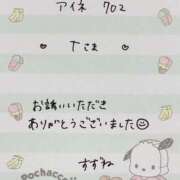 アイネ 702
♡ Tさま ♡
お誘いいただき
ありがとうございました☺
すずね
Pochacco